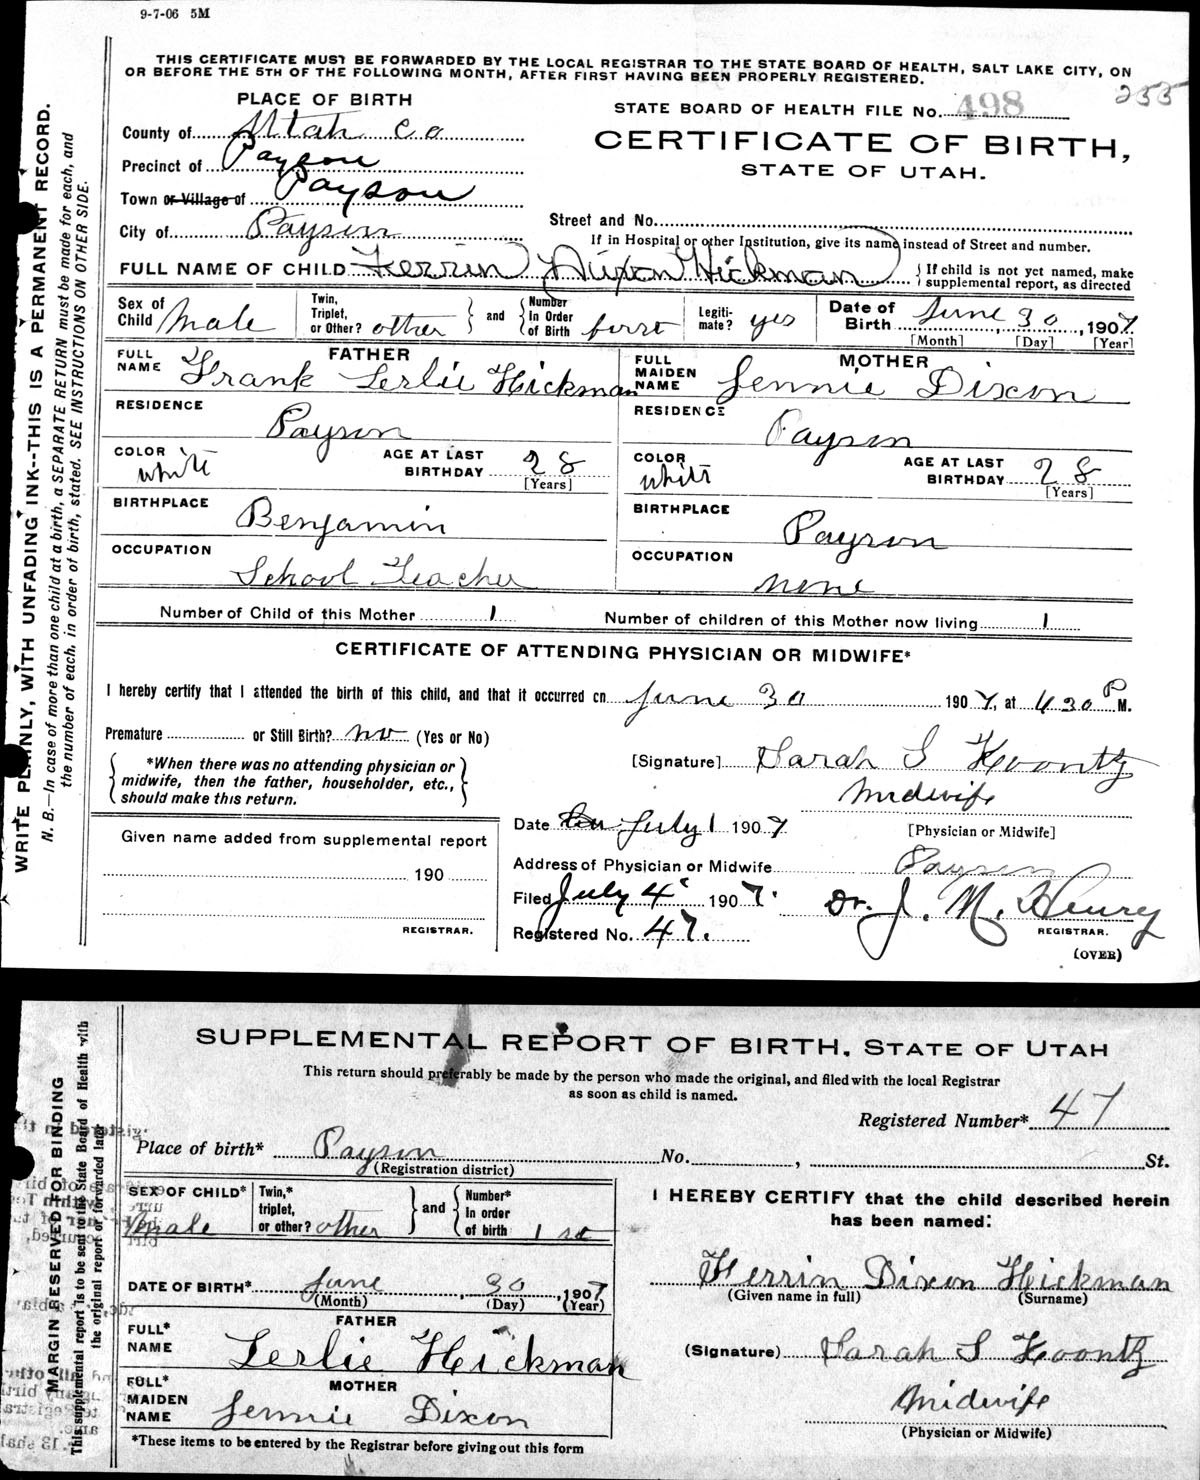 9-7-06 5M
THIS CERTIFICATE MUST BE FORWARDED BY THE LOCAL REGISTRAR TO THE STATE BOARD OF HEALTH, SALT LAKE CITY, ON
OR BEFORE THE 5TH OF THE FOLLOWING MONTH, AFTER FIRST HAVING BEEN PROPERLY REGISTERED.
255
PLACE OF BIRTH
STATE BOARD OF HEALTH FILE No. 498
County of Utah Co
CERTIFICATE OF BIRTH,
Precinct of Payson
STATE OF UTAH.
Town or Village of Payson
City of Payson
Street and No.
If in Hospital or other Institution, give its name instead of Street and number.
FULL NAME OF CHILD Ferrin Dixon Hickman { If child is not yet named, make supplemental report, as directed
Sex of Child Male Twin, Triplet, or Other? other } and { Number In Order of Birth first Legitimate? yes Date of Birth June, 30, 1907
[Month] [Day] [Year]
FATHER
FULL NAME Frank Leslie Hickman
RESIDENCE Payson
COLOR white AGE AT LAST BIRTHDAY 28 [Years]
BIRTHPLACE Benjamin
OCCUPATION School Teacher
MOTHER
FULL MAIDEN NAME Jennie Dixon
RESIDENCE Payson
COLOR white AGE AT LAST BIRTHDAY 28 [Years]
BIRTHPLACE Payson
OCCUPATION none
Number of Child of this Mother 1 Number of children of this Mother now living 1
CERTIFICATE OF ATTENDING PHYSICIAN OR MIDWIFE*
I hereby certify that I attended the birth of this child, and that it occurred on June 30 1907, at 4 30 P M.
Premature or Still Birth? no (Yes or No)
*When there was no attending physician or
midwife, then the father, householder, etc.,
should make this return.
[Signature] Sarah S Koontz
Midwife
[Physician or Midwife]
Date July 1 1907
Given name added from supplemental report
190
REGISTRAR.
Address of Physician or Midwife Payson
Filed July 4 1907. Dr. J. M. Henry
Registered No. 47.
REGISTRAR.
(OVER)
WRITE PLAINLY, WITH UNFADING INK--THIS IS A PERMANENT RECORD.
N. B.—In case of more than one child at a birth, a SEPARATE RETURN must be made for each, and
the number of each, in order of birth, stated. SEE INSTRUCTIONS ON OTHER SIDE.
SUPPLEMENTAL REPORT OF BIRTH, STATE OF UTAH
This return should preferably be made by the person who made the original, and filed with the local Registrar
as soon as child is named.
Registered Number* 47
Place of birth* Payson No. , St.
(Registration district)
SEX OF CHILD* Male Twin,* triplet, or other? other } and { Number* In order of birth 1st
DATE OF BIRTH* June, 30, 1907
(Month) (Day) (Year)
FATHER
FULL* NAME Leslie Hickman
MOTHER
FULL* MAIDEN NAME Jennie Dixon
*These items to be entered by the Registrar before giving out this form
I HEREBY CERTIFY that the child described herein
has been named:
Ferrin Dixon Hickman
(Given name in full) (Surname)
(Signature) Sarah S Koontz
Midwife
(Physician or Midwife)
MARGIN RESERVED FOR BINDING
This supplemental report is to be sent to the State Board of Health with
the original report or forwarded later